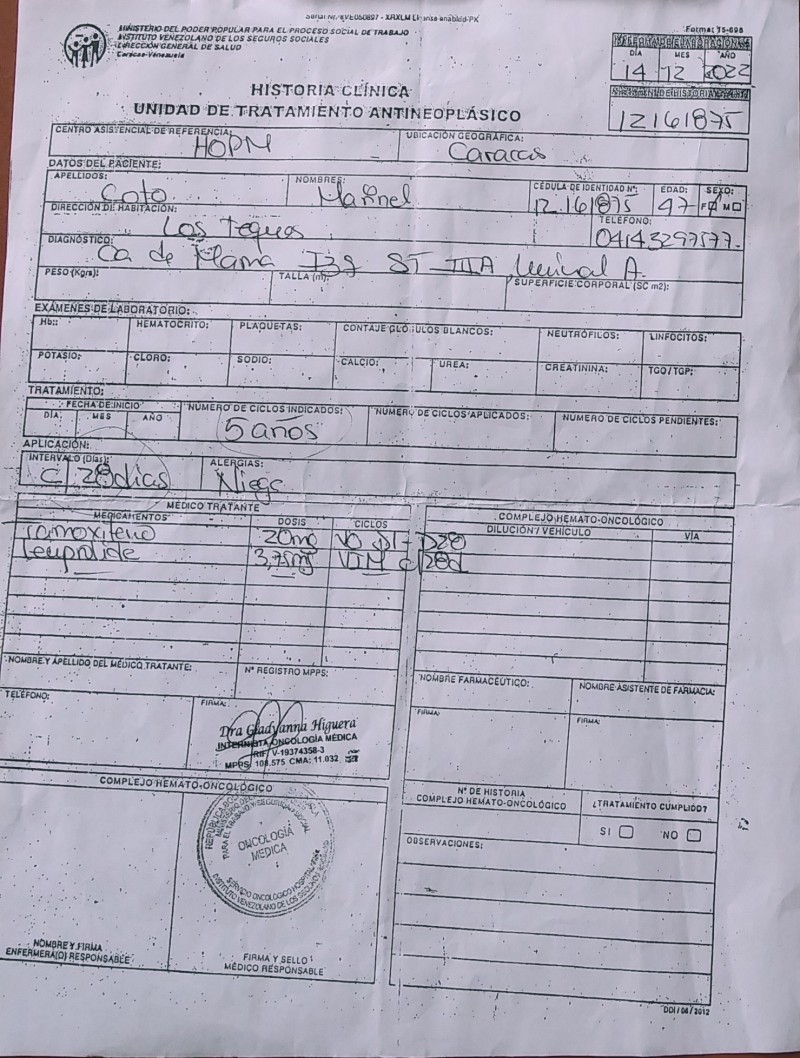 MINISTERIO DEL PODER POPULAR PARA EL PROCESO SOCIAL DE TRABAJO
INSTITUTO VENEZOLANO DE LOS SEGUROS SOCIALES
DIRECCIÓN GENERAL DE SALUD
Caracas-Venezuela
Forma: 15-698
DÍA MES AÑO
14 12 2022
HISTORIA CLÍNICA
UNIDAD DE TRATAMIENTO ANTINEOPLÁSICO
12161875
CENTRO ASISTENCIAL DE REFERENCIA: UBICACIÓN GEOGRÁFICA:
HOPM Caracas
DATOS DEL PACIENTE:
APELLIDOS: NOMBRES: CÉDULA DE IDENTIDAD Nº: EDAD: SEXO:
Coto 12.161875 47 F M
DIRECCIÓN DE HABITACIÓN: TELÉFONO:
Los Teques 04143297577
DIAGNÓSTICO:
Ca de Mama ST IIIA A.
PESO (Kgrs): TALLA (m): SUPERFICIE CORPORAL (SC m2):
EXÁMENES DE LABORATORIO:
Hb: HEMATOCRITO: PLAQUETAS: CONTAJE GLÓBULOS BLANCOS: NEUTRÓFILOS: LINFOCITOS:
POTASIO: CLORO: SODIO: CALCIO: UREA: CREATININA: TGO/TGP:
TRATAMIENTO:
FECHA DE INICIO NÚMERO DE CICLOS INDICADOS: NÚMERO DE CICLOS APLICADOS: NÚMERO DE CICLOS PENDIENTES:
DÍA MES AÑO
5 años
APLICACIÓN:
INTERVALO (Días): ALERGIAS:
c/28dias Niega
MÉDICO TRATANTE COMPLEJO HEMATO-ONCOLÓGICO
MEDICAMENTOS DOSIS CICLOS DILUCIÓN / VEHÍCULO VÍA
Tamoxifeno 20mg VO D1-D28
Leuprolide 3,75mg VIM c/28d
NOMBRE Y APELLIDO DEL MÉDICO TRATANTE: Nº REGISTRO MPPS:
NOMBRE FARMACÉUTICO: NOMBRE ASISTENTE DE FARMACIA:
TELÉFONO: FIRMA: FIRMA: FIRMA:
Dra Gladyanna Higuera
INTERNISTA ONCOLOGÍA MÉDICA
RIF: V-19374358-3
MPPS: 108.575 CMA: 11.032
COMPLEJO HEMATO-ONCOLÓGICO
Nº DE HISTORIA
COMPLEJO HEMATO-ONCOLÓGICO
¿TRATAMIENTO CUMPLIDO?
SI NO
ONCOLOGÍA
MEDICA
INSTITUTO VENEZOLANO DE LOS SEGUROS
OBSERVACIONES:
NOMBRE Y FIRMA
ENFERMERA(O) RESPONSABLE
FIRMA Y SELLO
MÉDICO RESPONSABLE
DDI/06/2012